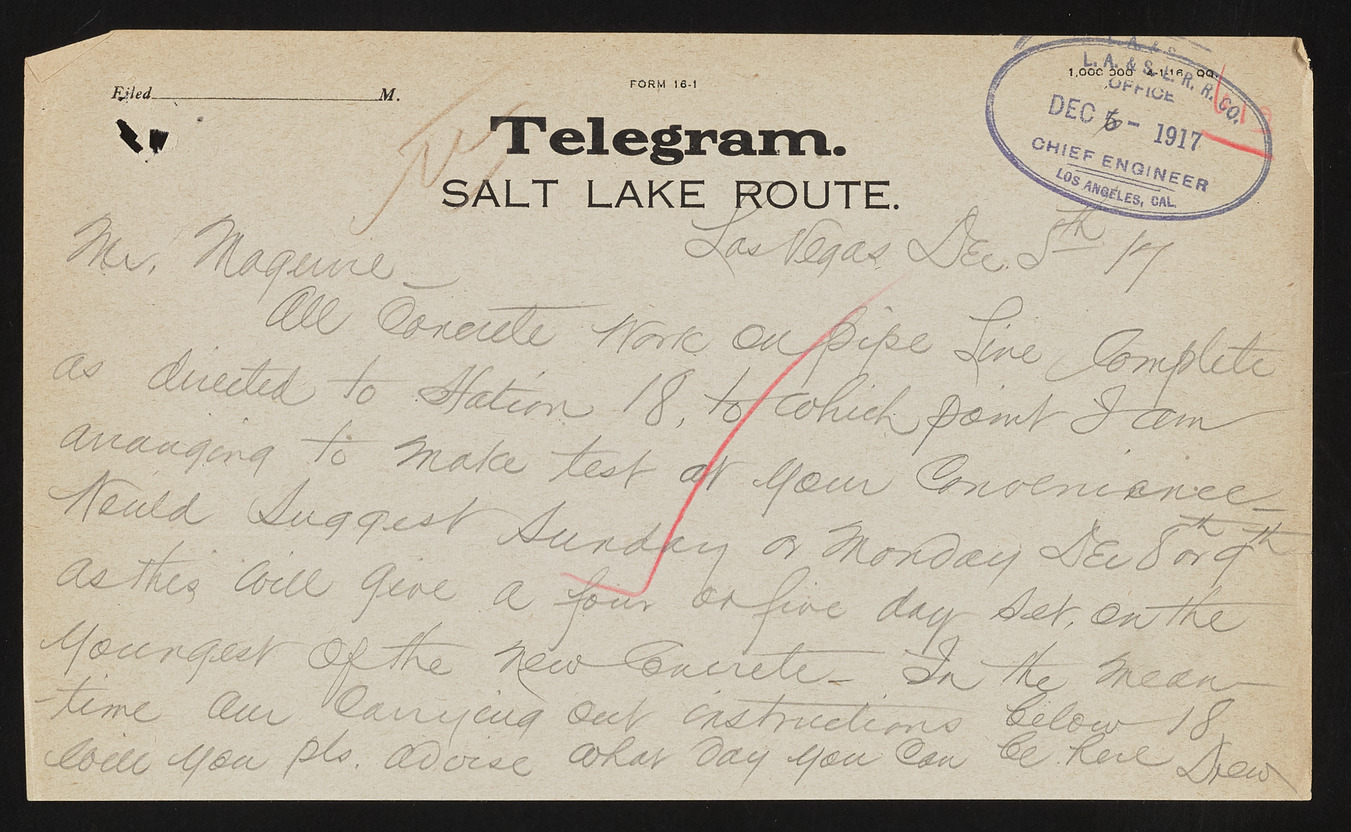 Filed M.
FORM 16-1
1,000 000 4-1-16 QQ.
Telegram.
SALT LAKE ROUTE.
L. A. & S. L. R. R. CO.
OFFICE
DEC 5 - 1917
CHIEF ENGINEER
LOS ANGELES, CAL.
Las Vegas Dec. 5th 17
Mr. Maguire
All Concrete Work on pipe Line Complete
as directed to Station 18, to which point I am
arranging to make test at your Convenience -
Would Suggest Sunday or Monday Dec 8 or 9th
as this will give a four or five day set, on the
youngest of the new Concrete - In the mean
time am Carrying out instructions below 18
Will you pls. advise what day you Can be here Drew